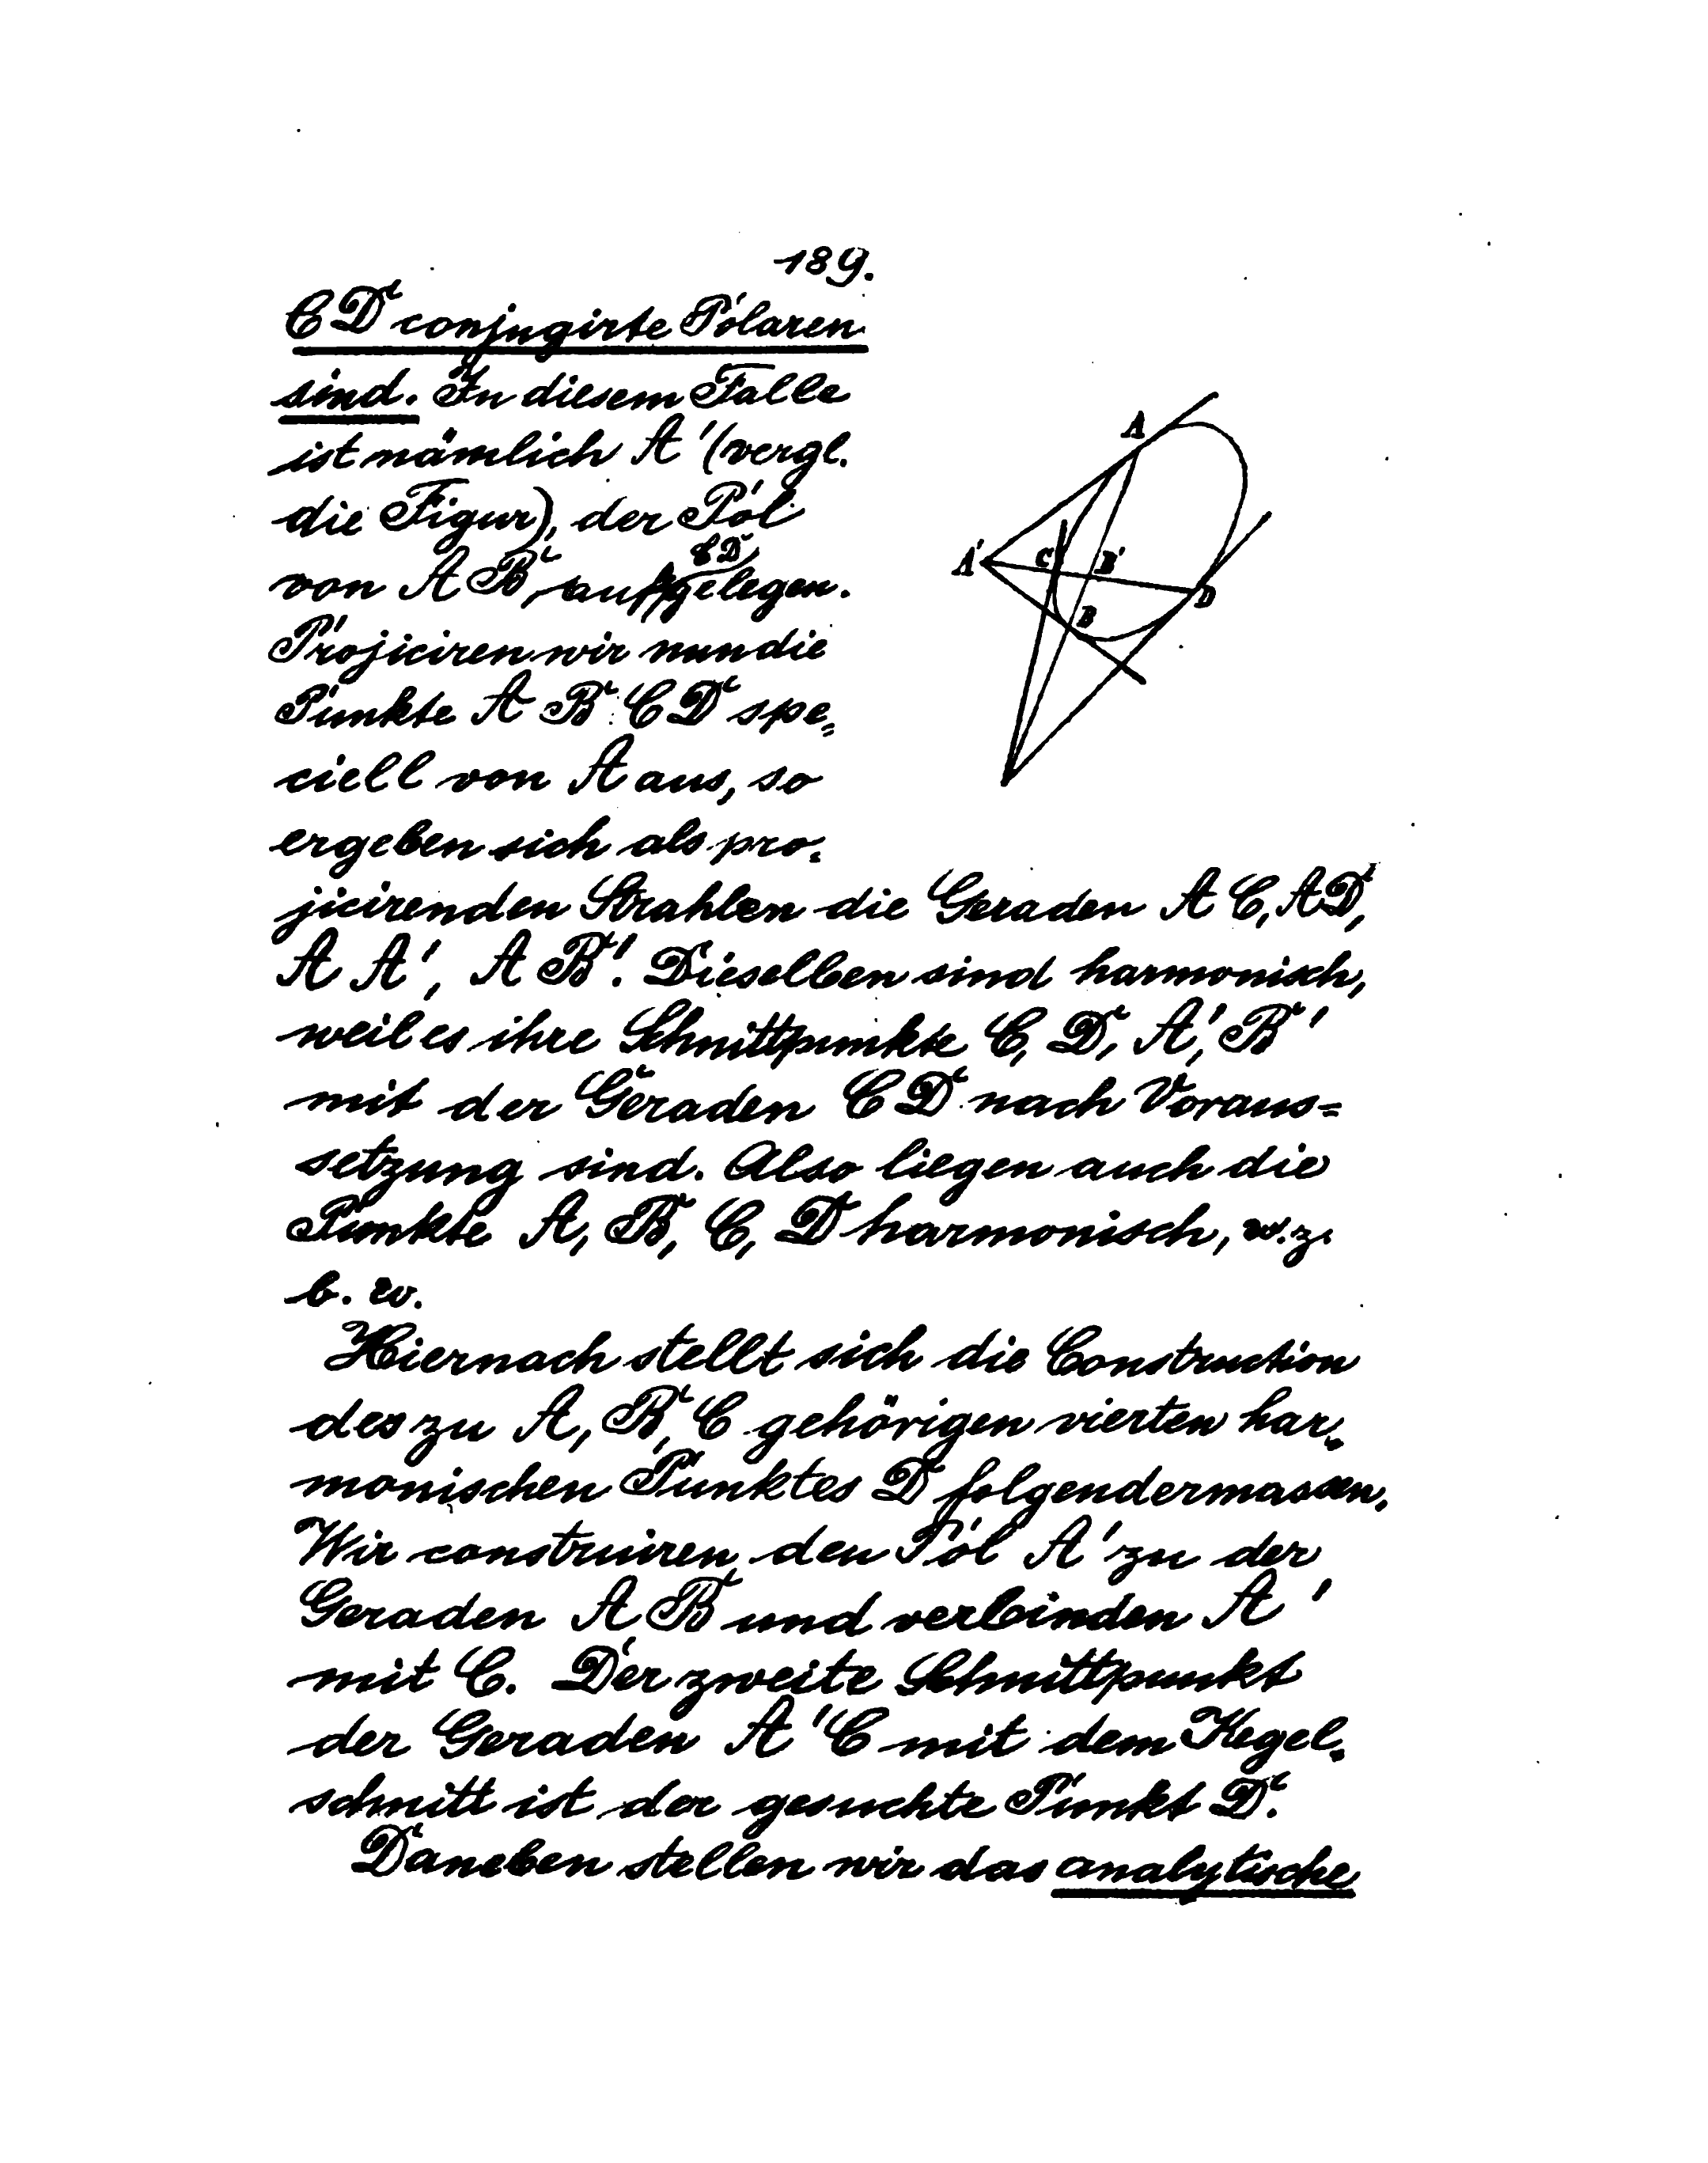 189.
C D conjugirte Polaren
sind. In diesem Falle
ist nämlich A' (vergl.
die Figur), der Pol
von A B, auf CD gelegen.
Projiciren wir nun die
Punkte A B C D spe-
ciell von A aus, so
ergeben sich als pro-
jicirenden Strahlen die Geraden A C, A D,
A A', A B'. Dieselben sind harmonisch,
weil es ihre Schnittpunkte C, D, A', B'
mit der Geraden C D nach Voraus=
setzung sind. Also liegen auch die
Punkte A, B, C, D harmonisch, w. z.
b. w.
Hiernach stellt sich die Construction
des zu A, B, C gehörigen vierten har-
monischen Punktes D folgendermassen.
Wir construiren den Pol A' zu der
Geraden A B und verbinden A'
mit C. Der zweite Schnittpunkt
der Geraden A' C mit dem Kegel-
schnitt ist der gesuchte Punkt D.
Daneben stellen wir das analytische
A
A'
C
B'
D
B